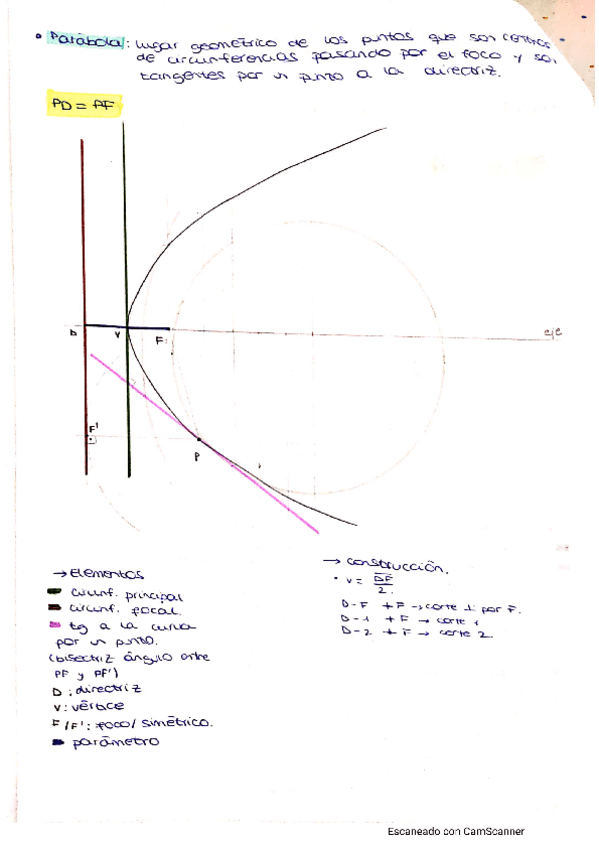 • Parábola: lugar geométrico de los puntos que son centros
de circunferencias pasando por el foco y son
tangentes por un punto a la directriz.
PD = PF
D
V
F
eje
F'
P
→ Elementos
circunf. principal
circunf. focal.
tg a la curva
por un punto.
(bisectriz ángulo entre
PF y PF')
D: directriz
V: vértice
F/F': foco/simétrico.
parámetro
→ construcción.
• V = DF
2.
D-F + F → corte ⊥ por F.
D-1 + F → corte 1
D-2 + F → corte 2
Escaneado con CamScanner